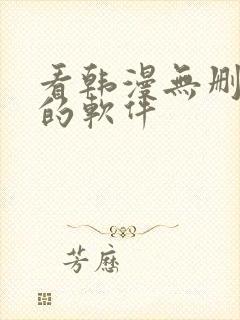 看韩漫無删
的軟件
芳歷